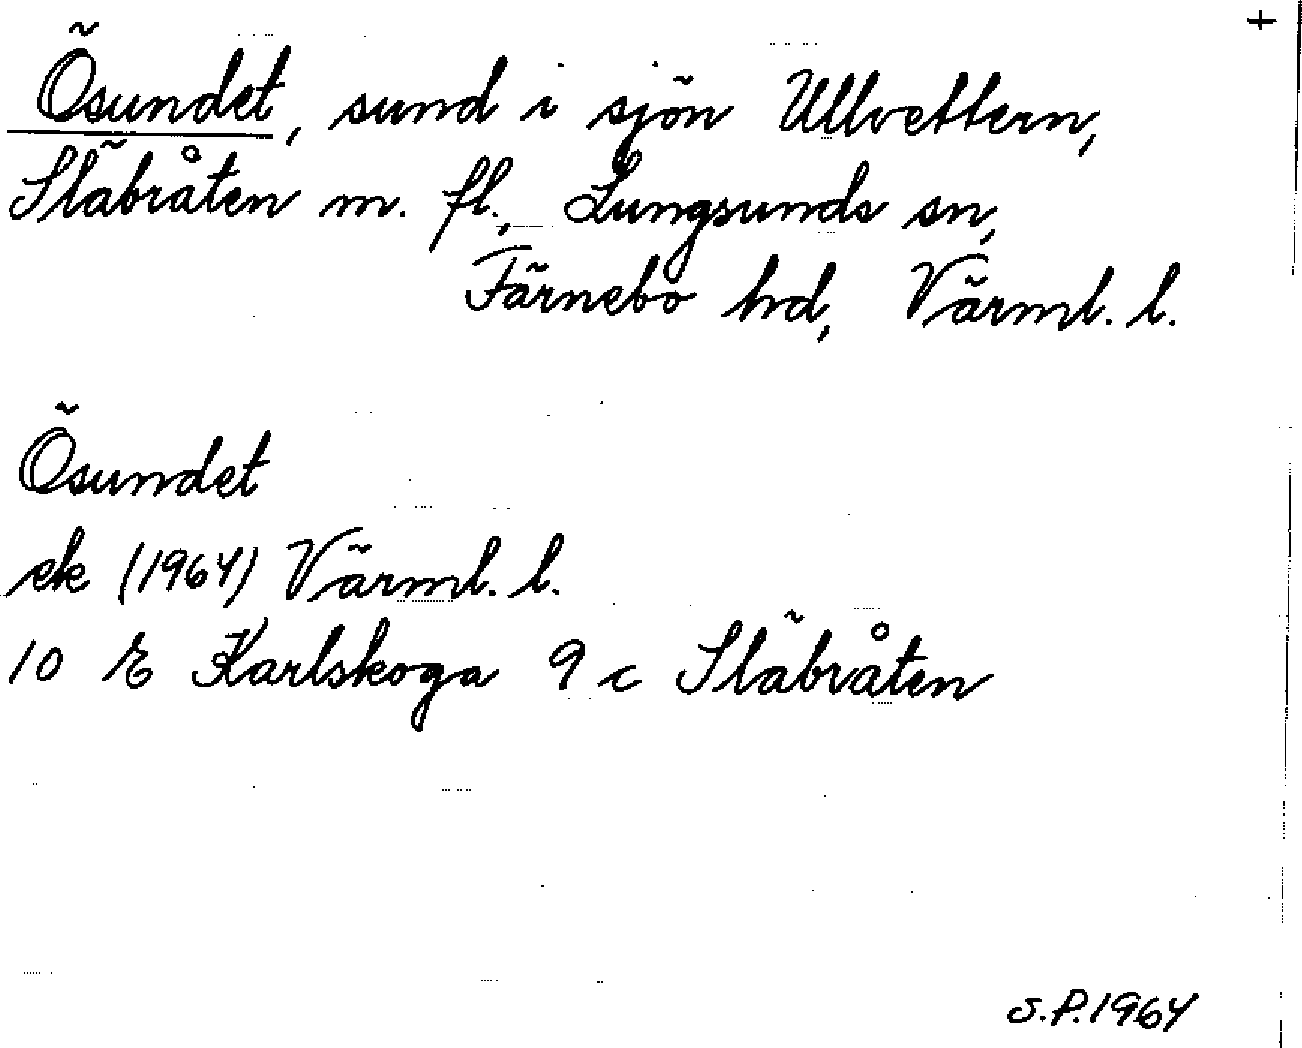 +
Ösundet, sund i sjön Ullvettern,
Släbråten m. fl., Lungsunds sn,
Färnebo hd, Värml. l.
Ösundet
ek (1964) Värml. l.
10 E Karlskoga 9 c Släbråten
S.P. 1964